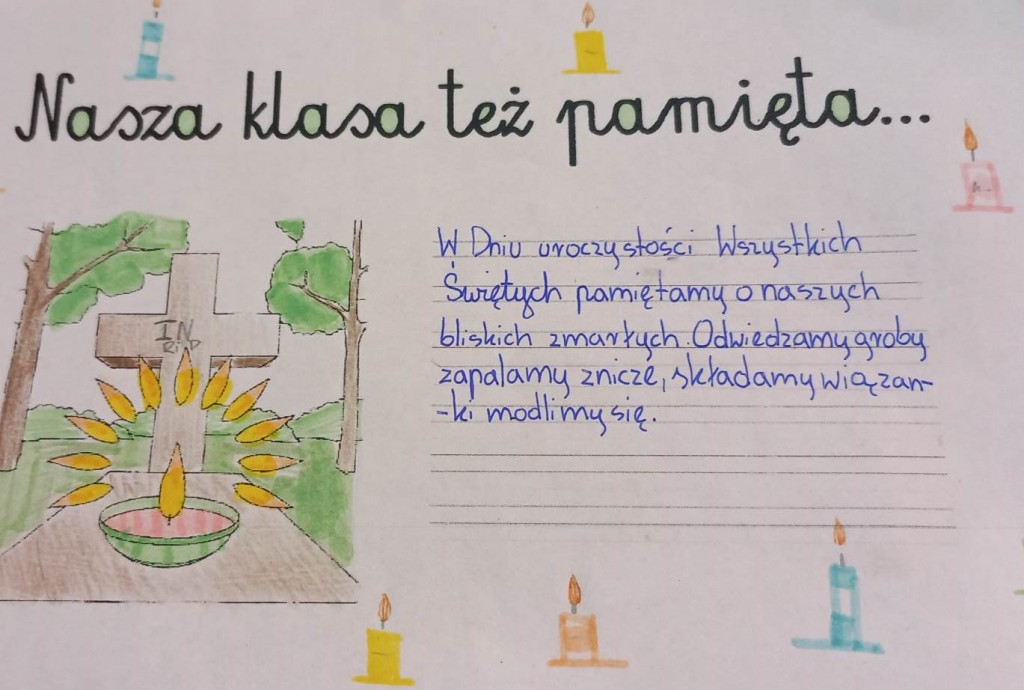 Nasza klasa też pamięta...
W Dniu uroczystości Wszystkich
Świętych pamiętamy o naszych
bliskich zmarłych. Odwiedzamy groby
zapalamy znicze, składamy wiązan-
-ki modlimy się.